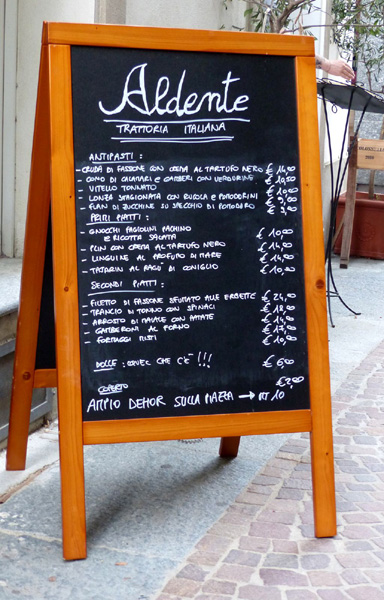 Aldente
TRATTORIA ITALIANA
ANTIPASTI:
- CRUDA DI FASSONE CON CREMA AL TARTUFO NERO € 14,00
- COMO DI CALAMARI E GAMBERI CON VERDURINE € 10,50
- VITELLO TONNATO € 10,00
- LONZA STAGIONATA CON RUCOLA E POMODORINI € 9,00
- FLAN DI ZUCCHINE SU SPECCHIO DI POMODORO € 9,00
PRIMI PIATTI:
- GNOCCHI FAGIOLINI PACHINO € 10,00
E RICOTTA SALATA
- PLIN CON CREMA AL TARTUFO NERO € 14,00
- LINGUINE AL PROFUMO DI MARE € 14,00
- TAJARIN AL RAGU' DI CONIGLIO € 10,00
SECONDI PIATTI:
- FILETTO DI FASSONE SFUMATO ALLE ERBETTE € 24,00
- TRANCIO DI TONNO CON SPINACI € 18,00
- ARROSTO DI MAIALE CON PATATE € 14,00
- GAMBERONI AL FORNO € 17,00
- FORMAGGI MISTI € 10,00
DOLCE: QUEL CHE C'E' !!! € 6,00
COPERTO € 2,00
AMPIO DEHOR SULLA PIAZZA → MT 10